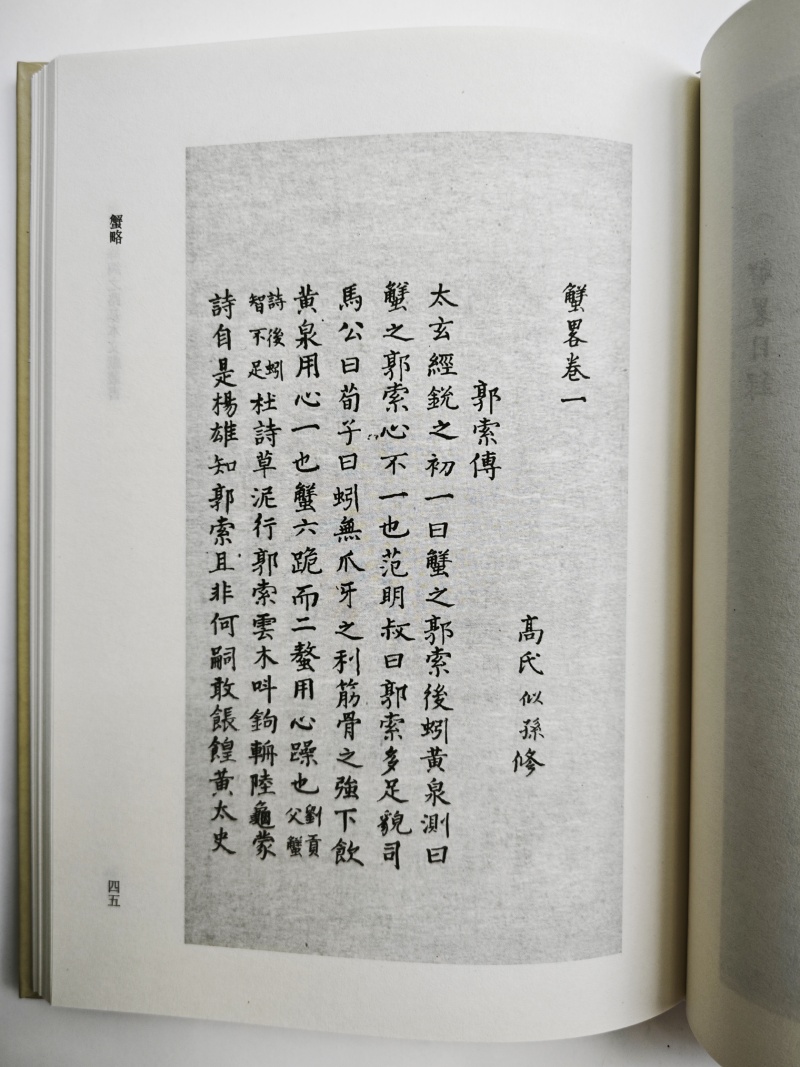 蟹畧卷一
高氏似孫修
郭索傳
太玄經銳之初一曰蟹之郭索後蚓黃泉測曰
蟹之郭索心不一也范明叔曰郭索多足貌司
馬公曰荀子曰蚓無爪牙之利筋骨之強下飲
黃泉用心一也蟹六跪而二螯用心躁也劉貢父蟹
詩後蚓智不足杜詩草泥行郭索雲木叫鉤輈陸龜蒙
詩自是楊雄知郭索且非何嗣敢餦餭黃太史
蟹略
四五